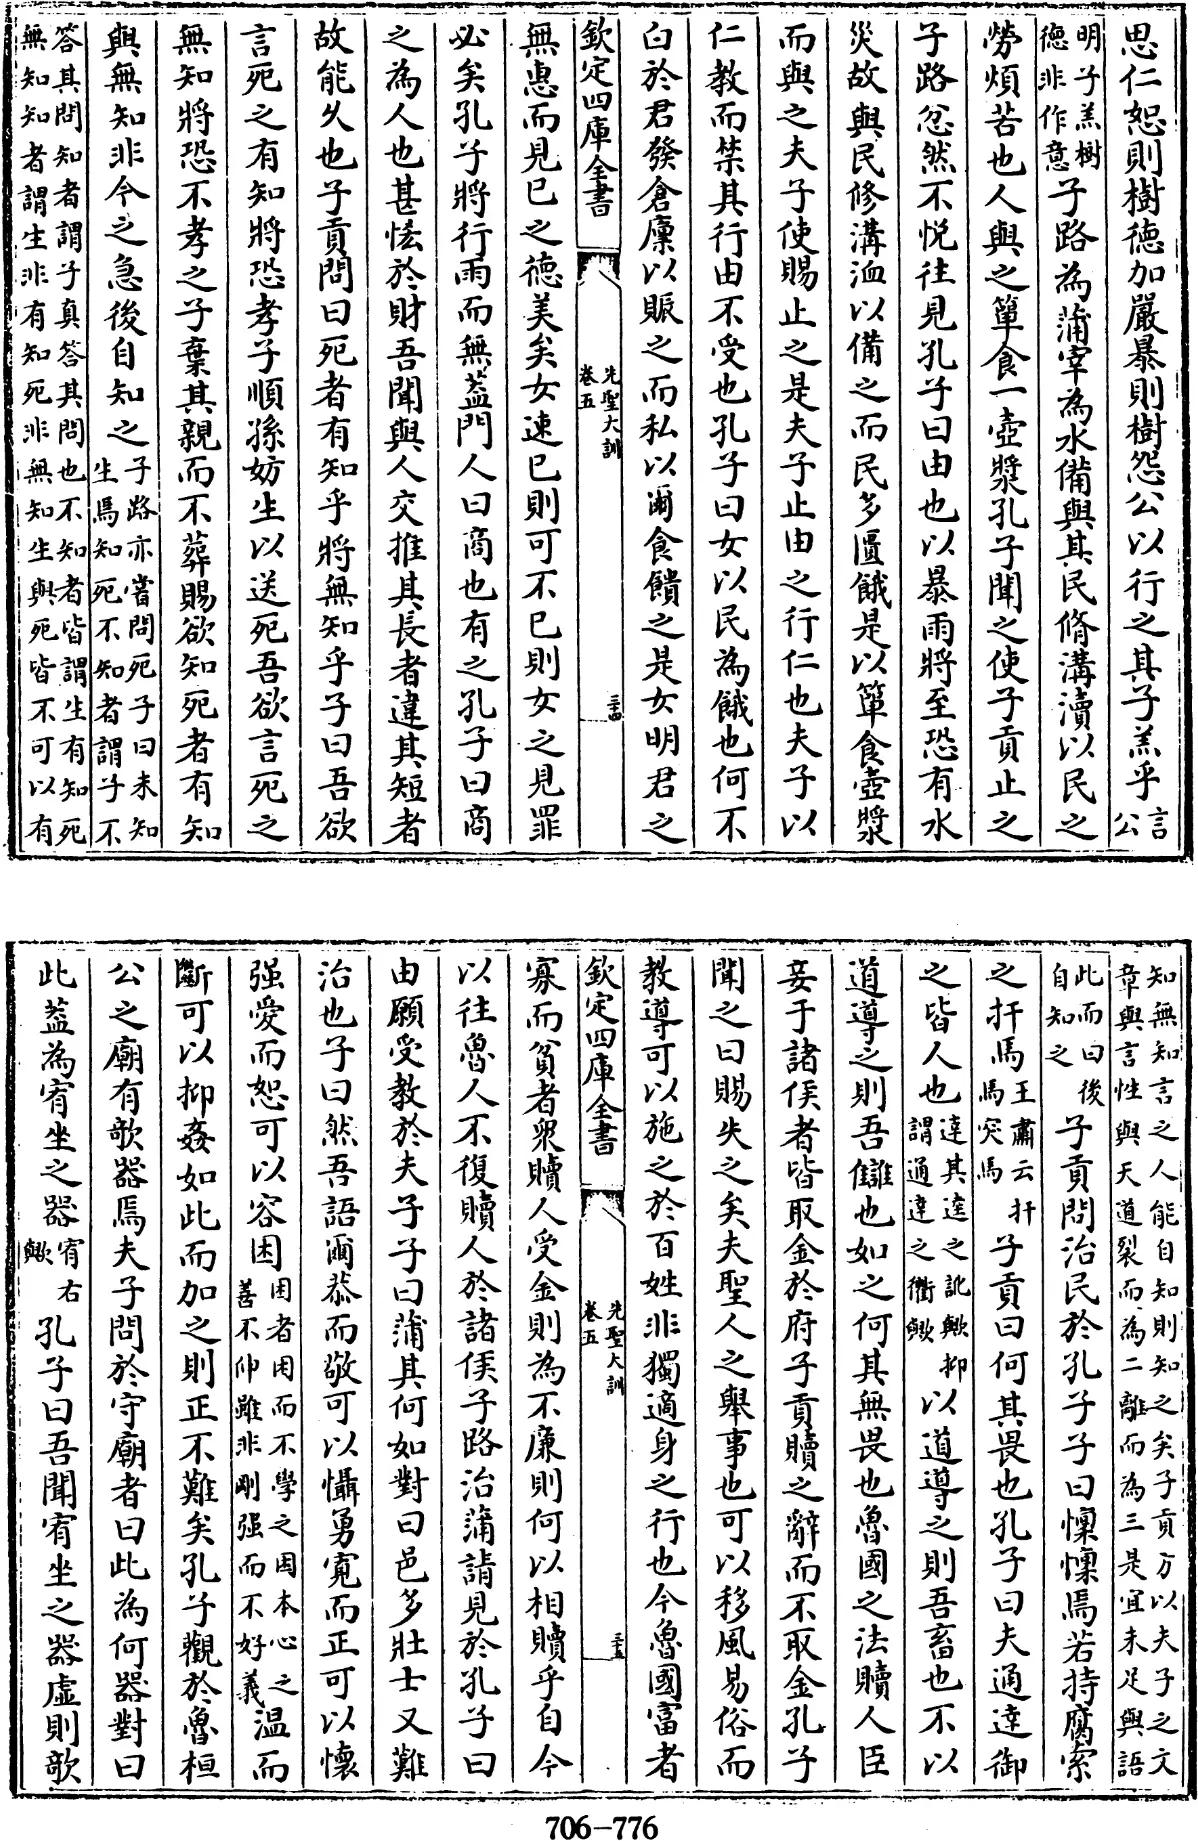 思仁恕則樹德加嚴暴則樹怨公以行之其子羔乎言公
明子羔樹德非作意子路為蒲宰為水備與其民脩溝瀆以民之
勞煩苦也人與之簞食一壺漿孔子聞之使子貢止之
子路忿然不悦往見孔子曰由也以暴雨將至恐有水
災故與民修溝洫以備之而民多匱餓是以簞食壺漿
而與之夫子使賜止之是夫子止由之行仁也夫子以
仁教而禁其行由不受也孔子曰女以民為餓也何不
白於君發倉廩以賑之而私以爾食饋之是女明君之
欽定四庫全書 先聖大訓卷五 三十四
無惠而見已之德美矣女速已則可不已則女之見罪
必矣孔子將行雨而無蓋門人曰商也有之孔子曰商
之為人也甚恡於財吾聞與人交推其長者違其短者
故能久也子貢問曰死者有知乎將無知乎子曰吾欲
言死之有知將恐孝子順孫妨生以送死吾欲言死之
無知將恐不孝之子棄其親而不葬賜欲知死者有知
與無知非今之急後自知之子路亦嘗問死子曰未知生焉知死不知者謂子不
答其問知者謂子真答其問也不知者皆謂生有知死無知知者謂生非有知死非無知生與死皆不可以有
知無知言之人能自知則知之矣子貢方以夫子之文章與言性與天道裂而為二離而為三是宜未足與語
此而曰後自知之子貢問治民於孔子子曰懍懍焉若持腐索
之扞馬王肅云扞馬突馬子貢曰何其畏也孔子曰夫通達御
之皆人也達其達之訛歟抑謂通達之衢歟以道導之則吾畜也不以
道導之則吾讎也如之何其無畏也魯國之法贖人臣
妾于諸侯者皆取金於府子貢贖之辭而不取金孔子
聞之曰賜失之矣夫聖人之舉事也可以移風易俗而
教導可以施之於百姓非獨適身之行也今魯國富者
欽定四庫全書 先聖大訓卷五 三十五
寡而貧者衆贖人受金則為不廉則何以相贖乎自今
以往魯人不復贖人於諸侯子路治蒲請見於孔子曰
由願受教於夫子子曰蒲其何如對曰邑多壯士又難
治也子曰然吾語爾恭而敬可以懾勇寛而正可以懷
强愛而恕可以容困困者困而不學之困本心之善不伸雖非剛强而不好義温而
斷可以抑姦如此而加之則正不難矣孔子觀於魯桓
公之廟有欹器焉夫子問於守廟者曰此為何器對曰
此蓋為宥坐之器宥右歟孔子曰吾聞宥坐之器虛則欹
706-776